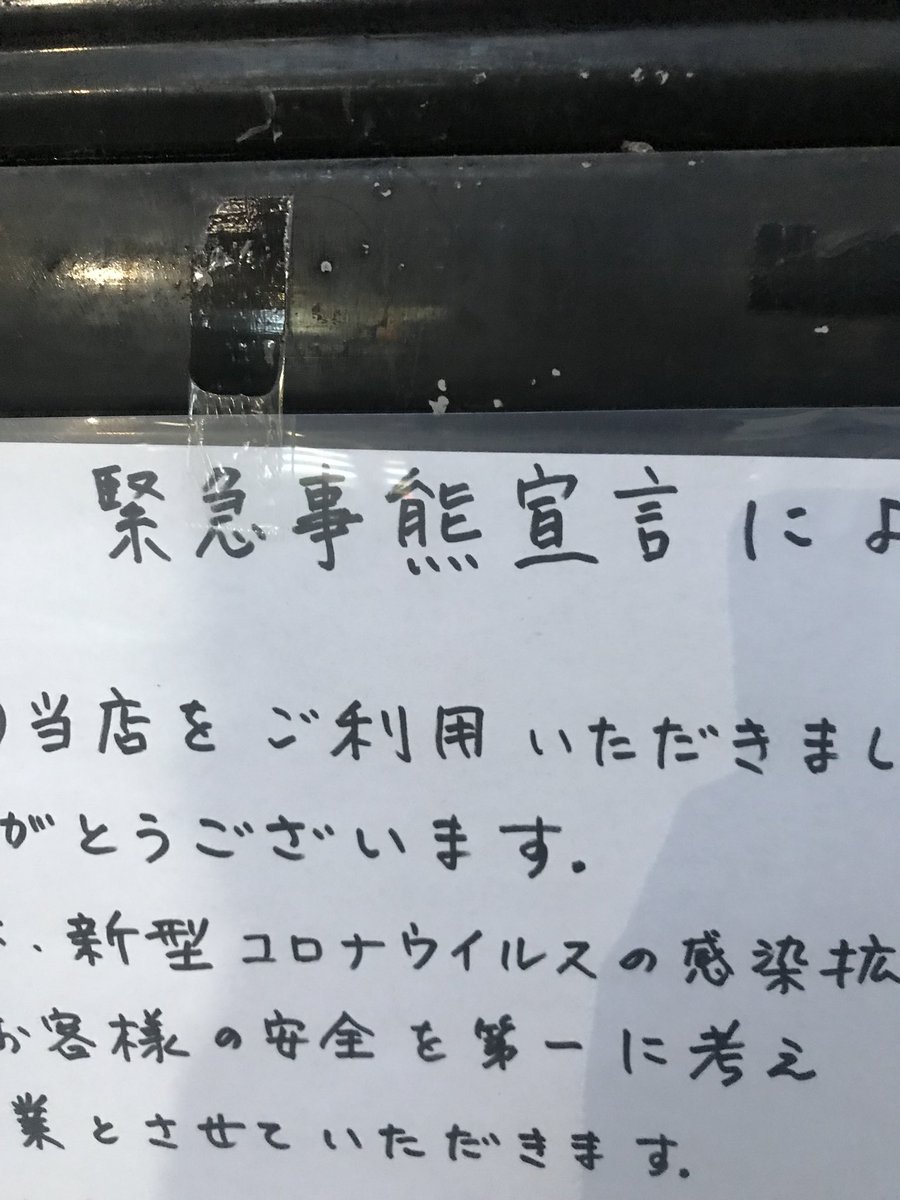 緊急事熊宣言によ
当店をご利用いただきまし
がとうございます.
、新型コロナウイルスの感染拡
お客様の安全を第一に考え
業とさせていただきます.